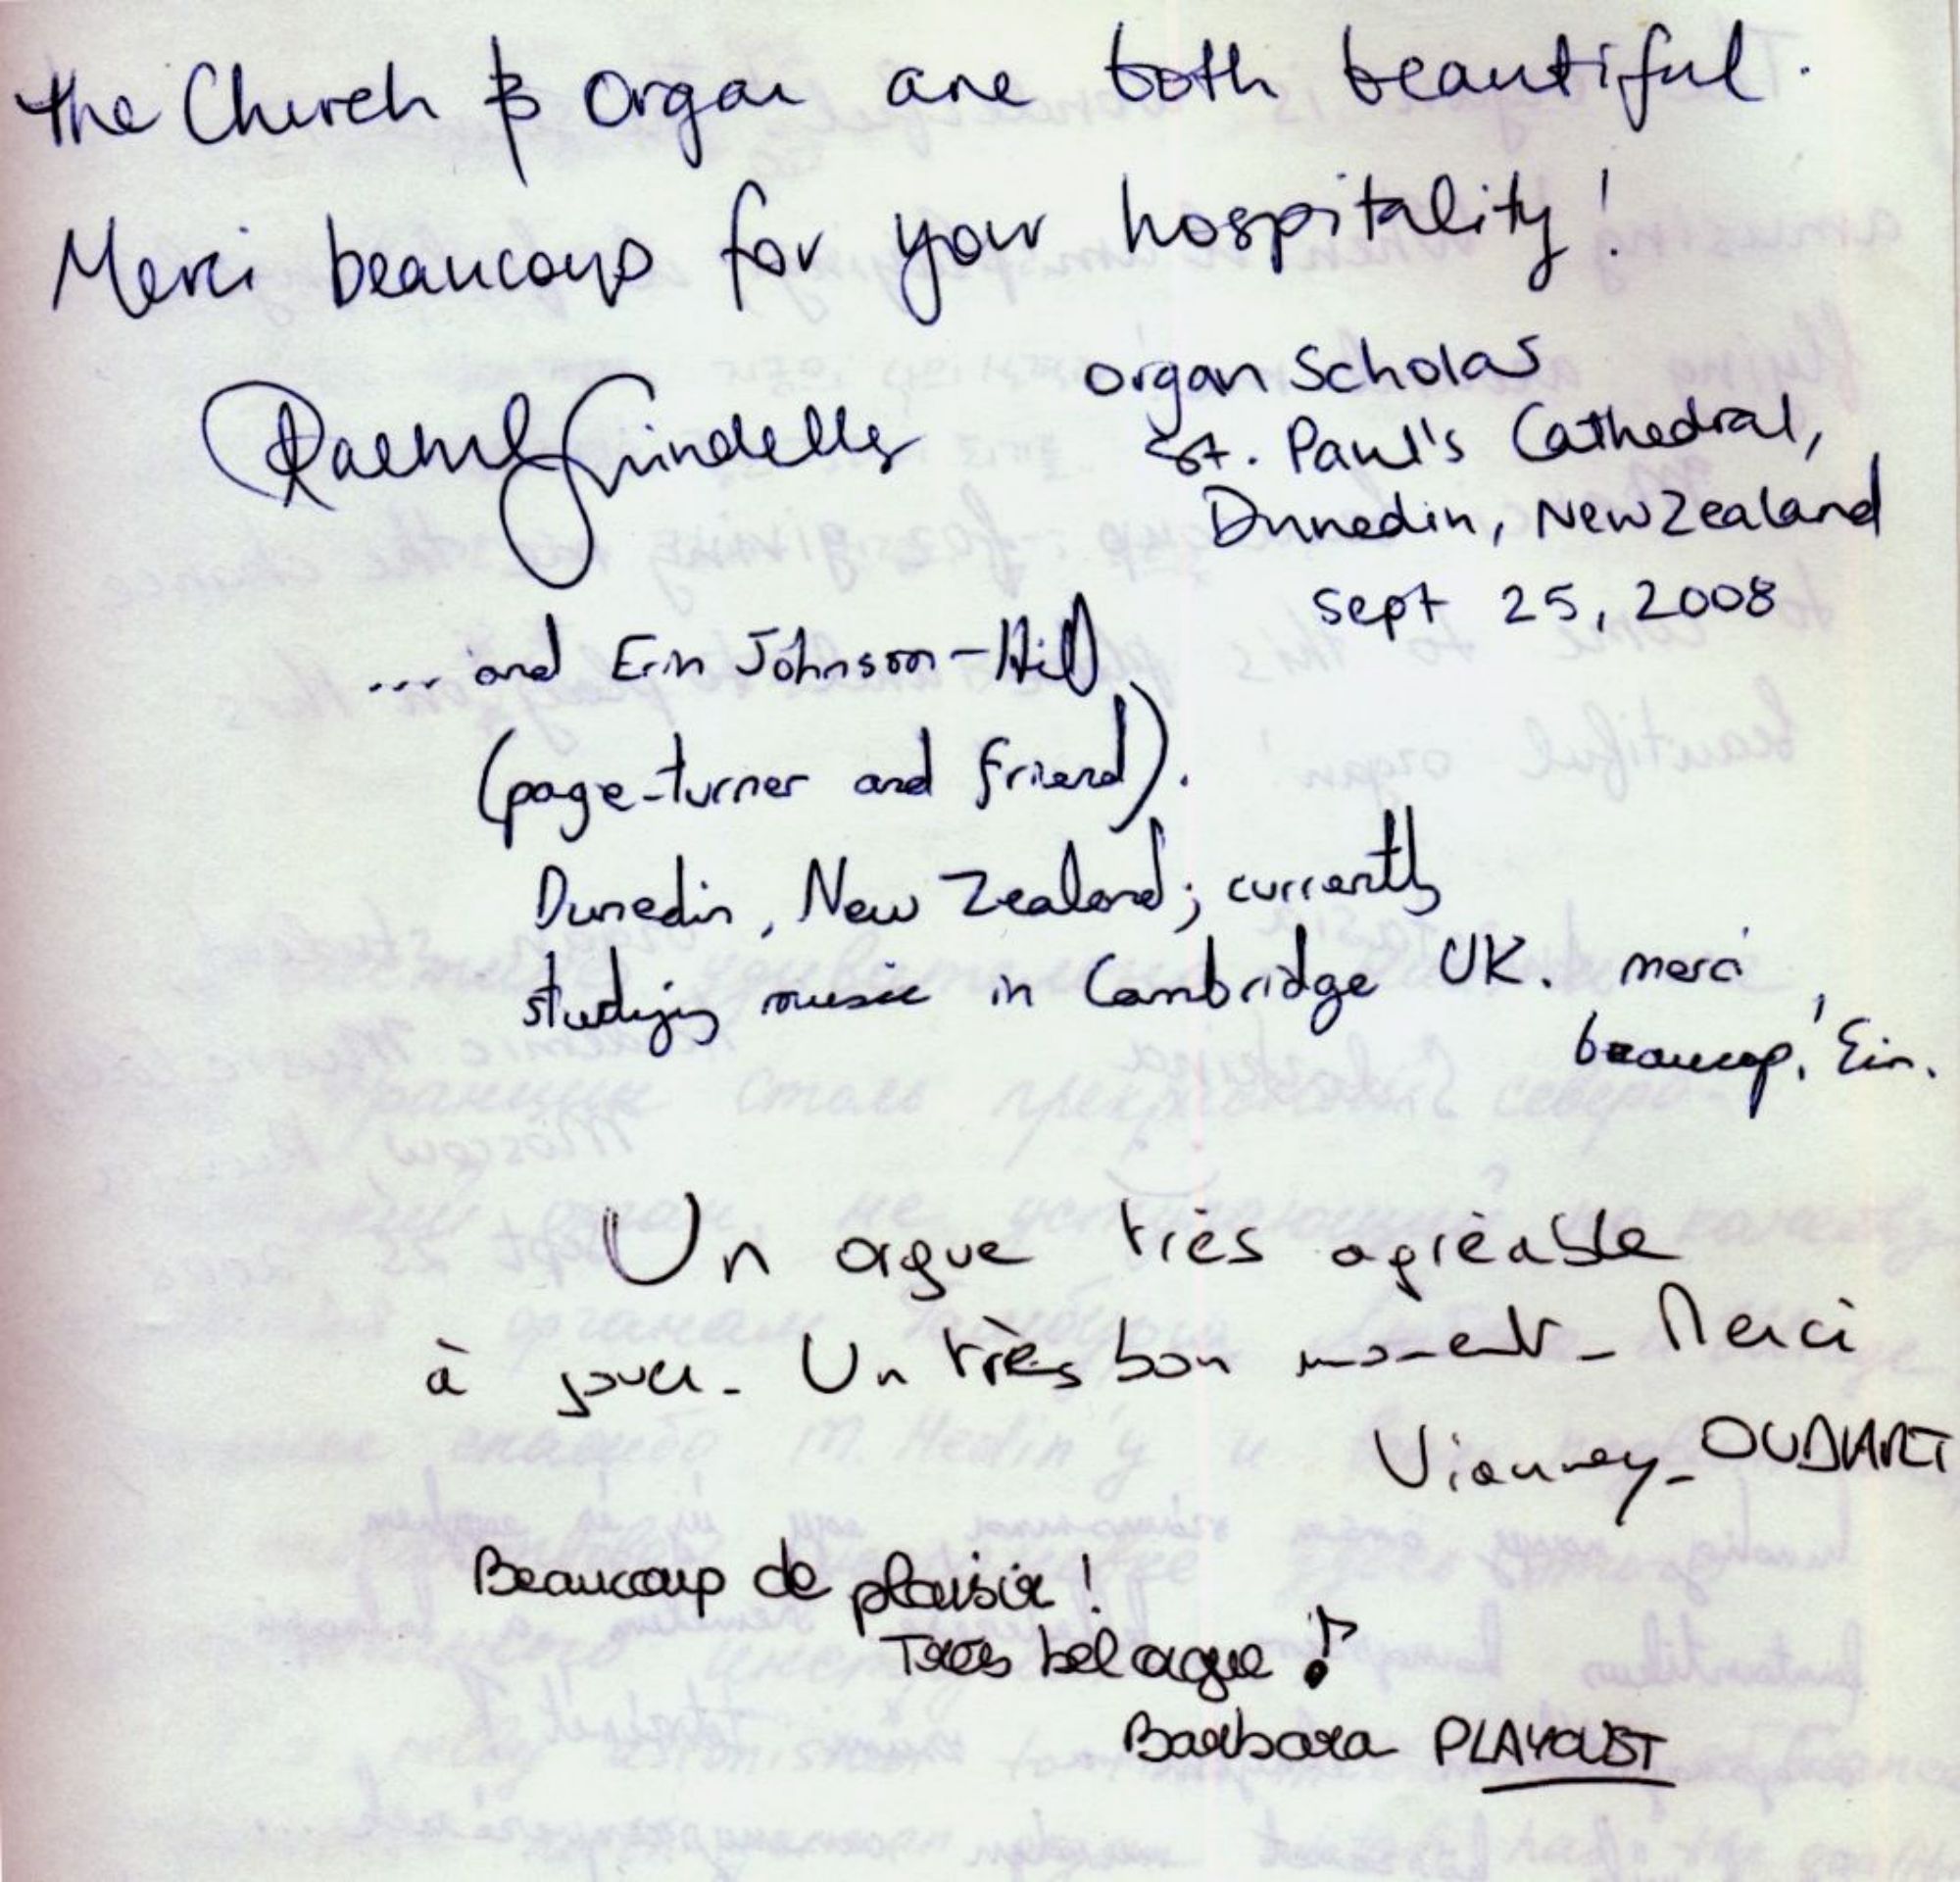 the Church & Organ are both beautiful.
Merci beaucoup for your hospitality!
Organ Scholar
St. Paul's Cathedral,
Dunedin, New Zealand
Sept 25, 2008
... and Erin Johnson-Hill
(page-turner and friend).
Dunedin, New Zealand; currently
studying music in Cambridge UK. merci
beaucoup! Erin.
Un orgue très agréable
à jouer. Un très bon moment - Merci
Vianney OUDART
Beaucoup de plaisir!
Très bel orgue!
Barbara PLAYOUST